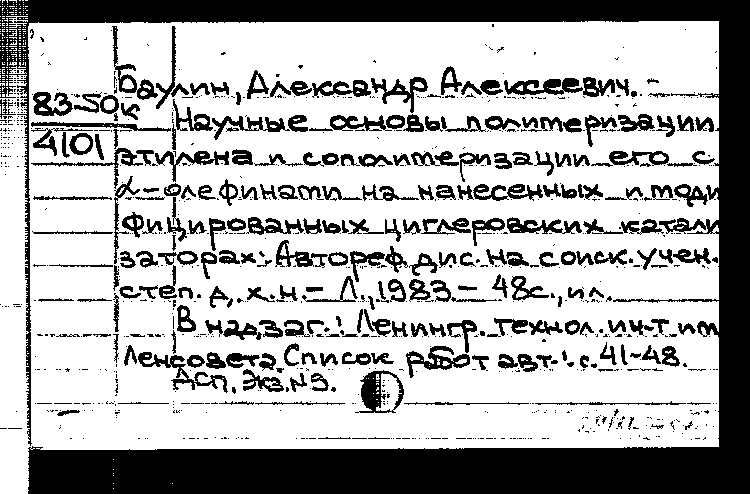 Баулин, Александр Алексеевич. -
83-50к
4101
Научные основы полимеризации
этилена и сополимеризации его с
α-олефинами на нанесенных и моди
фицированных циглеровских катали
заторах: Автореф. дис. на соиск. учен.
степ. д. х. н. - Л., 1983. - 48с., ил.
В надзаг.: Ленингр. технол. ин-т им
Ленсовета. Список работ авт.: с. 41-48.
ДСП. Экз. №9.